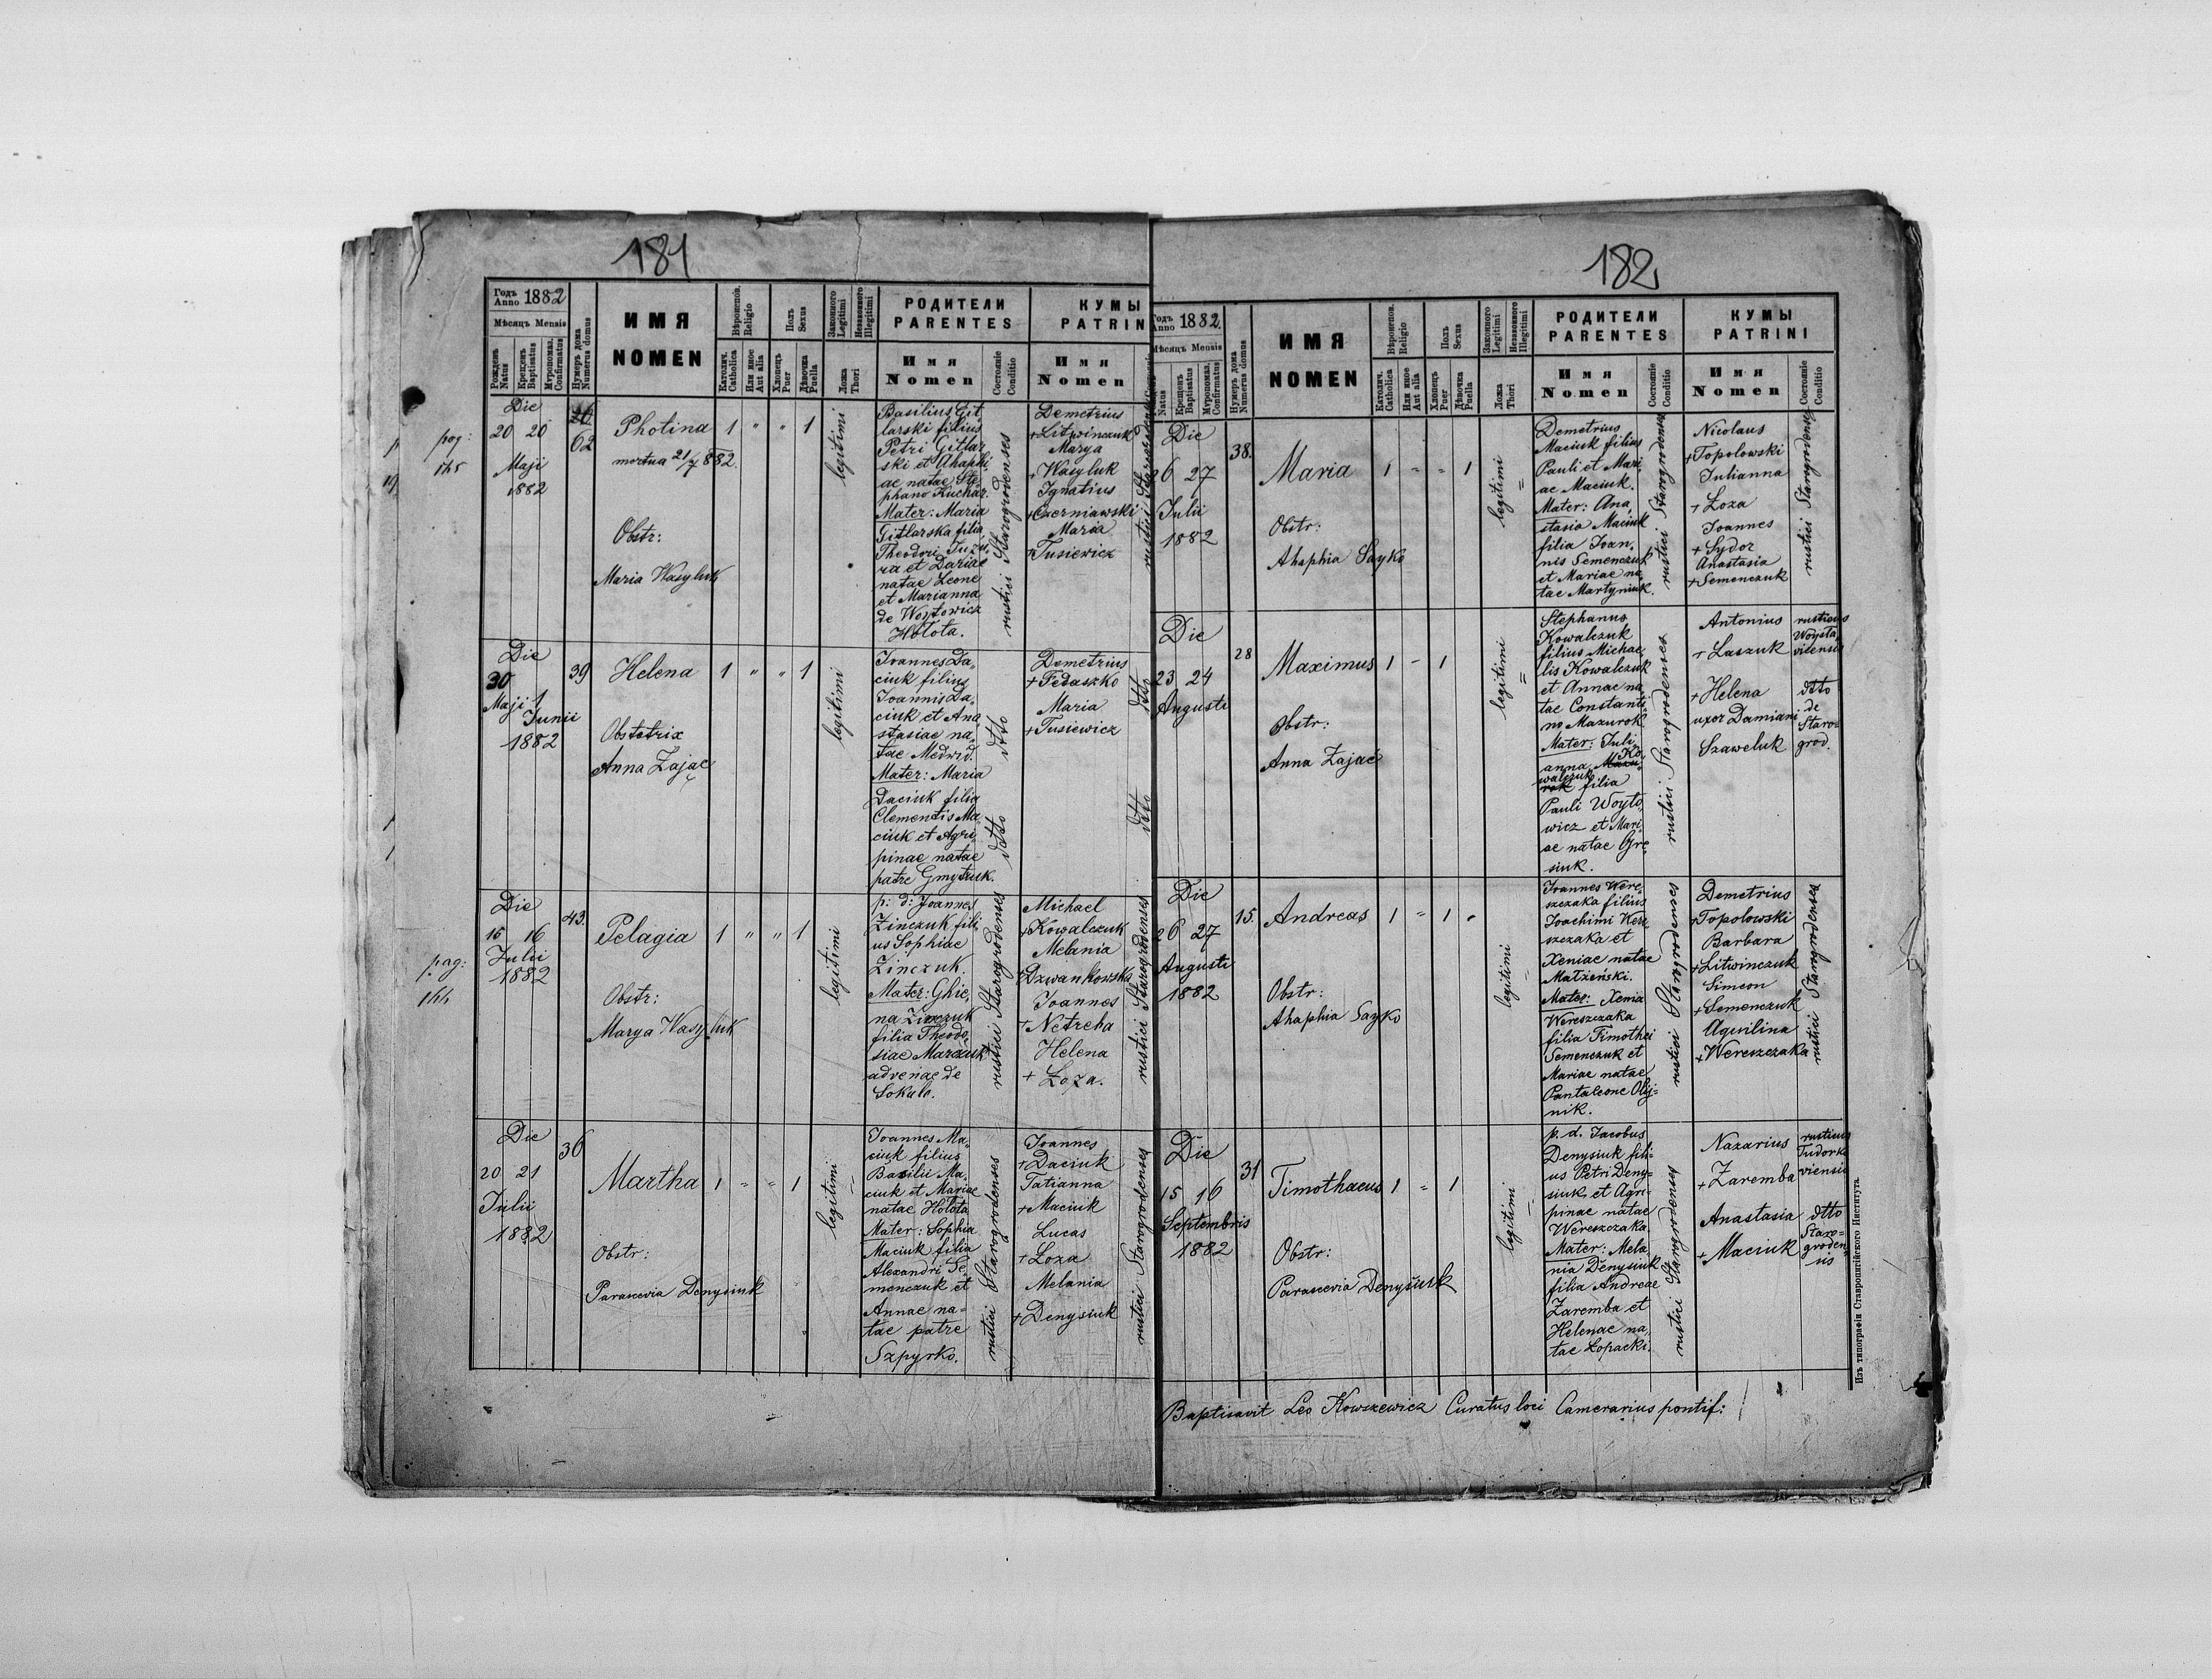 181
Годъ
Anno 1882
Мѣсяцъ Mensis
Рожденъ
Natus
Крещенъ
Baptisatus
Мѵропомаз.
Confirmatus
Нумеръ дома
Numerus domus
ИМЯ
NOMEN
Вѣроиспов.
Religio
Католич.
Catholica
Или иное
Aut alia
Полъ
Sexus
Хлопець
Puer
Дѣвочка
Puella
Законного
Legitimi
Незаконного
Illegitimi
Ложа
Thori
РОДИТЕЛИ
PARENTES
Имя
Nomen
Состояніе
Conditio
КУМЫ
PATRIN
Имя
Nomen
pag:
Die
20 20
Maji
1882
62
Photina
mortua 21/7 882.
Obstr:
Maria Wasyluk
1 " " 1
legitimi
Basilius Git
larski filius
Petri Gitlar
ski et Ahaphi
ae natae Ste
phano Kuchar.
Mater: Maria
Gitlarska filia
Theodori
ra et Dariae
natae Leone
et Marianna
de Woytowicz
Holota.
rustici Starogrodenses
Demetrius
+Litwinczuk
Marya
+Wasyluk
Ignatius
+Czerniawski
Maria
+Tusiewicz
rustici
Die
30
Maji 1
Junii
1882
39
Helena
Obstetrix
Anna Zając
1 " " 1
legitimi
Joannes Da,
ciuk filius
Joannis Da,
ciuk et Ana
stasiae na,
tae Medwid.
Mater: Maria
Daciuk filia
Clementis Ma,
ciuk et Agri,
pinae natae
patre Gmytruk.
dtto
dtto
Demetrius
+Fedaszko
Maria
+Tusiewicz
dtto
dtto
pag:
Die
15 16
Julii
1882
43.
Pelagia
Obstr:
Marya Wasyluk
1 " " 1
legitimi
p: d: Joannes
Zinczuk fili,
us Sophiae
Zinczuk.
Mater: Ghie,
na Zinczuk
filia Theodo,
siae Marczuk
advenae de
Sokalo.
rustici Starogrodenses
Michael
+Kowalczuk
Melania
+Dzwankowska
Joannes
+Netreba
Helena
+ Łoza.
rustici Starogrodenses
Die
20 21
Julii
1882
36
Martha
Obstr:
Parascevia Denysiuk
1 " " 1
legitimi
Joannes Ma,
ciuk filius
Basilii Ma,
ciuk et Mariae
natae Holota
Mater: Sophia
Maciuk filia
Alexandri Se,
menczuk et
Annae na=
tae patre
Szpyrko.
rustici Starogrodenses
Joannes
+Daciuk
Tatianna
+Maciuk
Lucas
+Łoza
Melania
+Denysiuk
rustici Starogrodenses
182
Годъ
Anno 1882.
Мѣсяцъ Mensis
Natus
Крещенъ
Baptisatus
Мѵропомаз.
Confirmatus
Нумеръ дома
Numerus domus
ИМЯ
NOMEN
Вѣроиспов.
Religio
Католич.
Catholica
Или иное
Aut alia
Полъ
Sexus
Хлопець
Puer
Дѣвочка
Puella
Законного
Legitimi
Незаконного
Illegitimi
Ложа
Thori
РОДИТЕЛИ
PARENTES
Имя
Nomen
Состояніе
Conditio
КУМЫ
PATRINI
Имя
Nomen
Состояніе
Conditio
Die
26 27
Julii
1882
38.
Maria
Obstr:
Ahaphia Sayko
1 " " 1
legitimi
Demetrius
Maciuk filius
Pauli et Mari
ae Maciuk.
Mater: Ana,
stasia Maciuk
filia Joan,
nis Semenczuk
et Mariae na
tae Martyniuk.
rustici Starogrodenses
Nicolaus
+Topolowski
Julianna
+ Łoza
Joannes
+ Sydor
Anastasia
+Semenczuk
rustici Starogrodenses
Die
23 24
Augusti
28
Maximus
Obstr:
Anna Zając
1 - 1
legitimi
Stephanus
Kowalczuk
filius Michae,
lis Kowalczuk
et Annae na,
tae Constanti
no Mazurok.
Mater: Juli,
anna Ko
walczuk
filia
Pauli Woyto,
wicz et Mari,
ae natae Gre,
siuk.
rustici Starogrodenses
Antonius
+ Laszuk
+Helena
uxor Damiani
Szaweluk
rusticus
Woysła,
vicensis
dtto
de
Staro=
grod.
Die
26 27
Augusti
1882
15.
Andreas
Obstr:
Ahaphia Sayko
1 " 1 "
legitimi
Joannes Were,
szczaka filius
Joachimi Were
szczaka et
Xeniae natae
Matzeński.
Mater: Xenia
Wereszczaka
filia Timothei
Semenczuk et
Mariae natae
Pantaleone Olij=
nik.
rustici Starogrodenses
Demetrius
+Topolowski
Barbara
+Litwinczuk
Simeon
+Semenczuk
Aquilina
+Wereszczaka
rustici Starogrodenses
Die
15 16
Septembris
1882
31
Timothaeus
Obstr:
Parascevia Denysiuk
1 " 1
legitimi
p. d. Jacobus
Denysiuk fili=
us Petri Deny=
siuk et Agri=
pinae natae
Wereszczaka
Mater: Mela
nia Denysiuk
filia Andreae
Zaremba et
Helenae na,
tae Łopacki.
rustici Starogrodenses
Nazarius
+ Zaremba
Anastasia
+ Maciuk
rusticus
Tudorko
viensis
dtto
Staro=
groden,
sis
Baptisavit Leo Kowszewicz Curatus loci Camerarius pontif:
Изъ типографіи Ставропигійского Института.